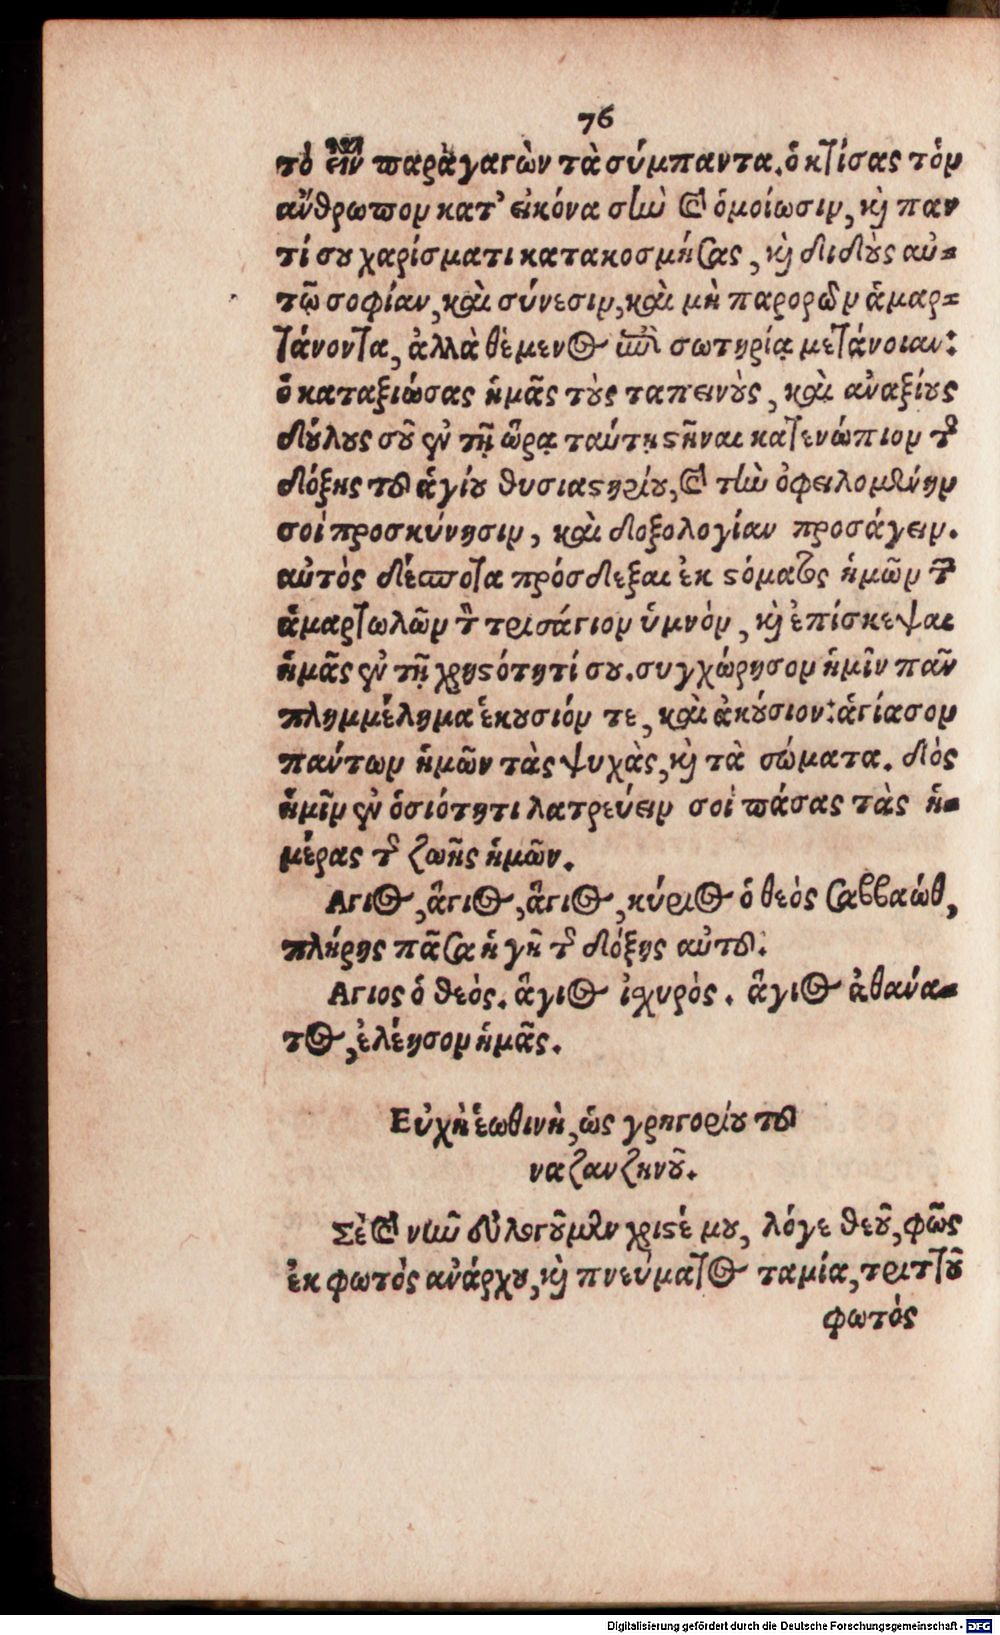 76
τὸ εἶναι παραγαγὼν τὰ σύμπαντα. ὁ κτίσας τὸν
ἄνθρωπον κατ’ εἰκόνα σὴν καὶ ὁμοίωσιν, καὶ παν
τί σου χαρίσματι κατακοσμήσας, καὶ διδοὺς αὐ-
τῷ σοφίαν, καὶ σύνεσιν, καὶ μὴ παρορῶν ἁμαρ-
τάνοντα, ἀλλὰ θέμενος ἐπὶ σωτηρίᾳ μετάνοιαν:
ὁ καταξιώσας ἡμᾶς τοὺς ταπεινοὺς, καὶ ἀναξίους
δούλους σοῦ ἐν τῇ ὥρᾳ ταύτῃ στῆναι κατενώπιον τῆς
δόξης τοῦ ἁγίου θυσιαστηρίου, καὶ τὴν ὀφειλομένην
σοὶ προσκύνησιν, καὶ δοξολογίαν προσάγειν.
αὐτὸς δέσποτα πρόσδεξαι ἐκ στόματος ἡμῶν τῶν
ἁμαρτωλῶν τὸν τρισάγιον ὑμνὸν, καὶ ἐπίσκεψαι
ἡμᾶς ἐν τῇ χρηστότητί σου. συγχώρησον ἡμῖν πᾶν
πλημμέλημα ἑκουσιόν τε, καὶ ἀκούσιον: ἁγίασον
πάντων ἡμῶν τὰς ψυχὰς, καὶ τὰ σώματα. δὸς
ἡμῖν ἐν ὁσιότητι λατρεύειν σοὶ πάσας τὰς ἡ-
μέρας τῆς ζωῆς ἡμῶν.
Αγιος, ἅγιος, ἅγιος, κύριος ὁ θεὸς Σαββαώθ,
πλήρης πᾶσα ἡ γῆ τῆς δόξης αὐτοῦ.
Αγιος ὁ θεὸς. ἅγιος ἰσχυρὸς. ἅγιος ἀθάνα-
τος, ἐλέησον ἡμᾶς.
Εὐχὴ ἑωθινὴ, ὡς γρηγορίου τοῦ
ναζανζηνοῦ.
Σὲ καὶ νῦν εὐλογοῦμεν χριστέ μου, λόγε θεοῦ, φῶς
ἐκ φωτὸς ἀνάρχου, καὶ πνεύματος ταμία, τριττοῦ
φωτός
Digitalisierung gefördert durch die Deutsche Forschungsgemeinschaft - DFG